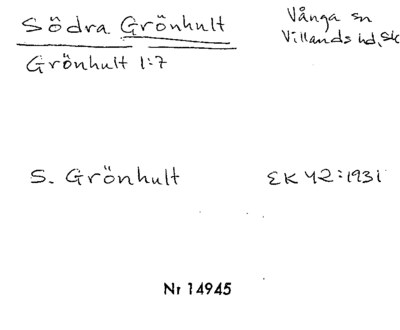 Södra Grönhult
Vånga sn
Villands hd, Sk
Grönhult 1:7
S. Grönhult
EK 42:1931
Nr 14945